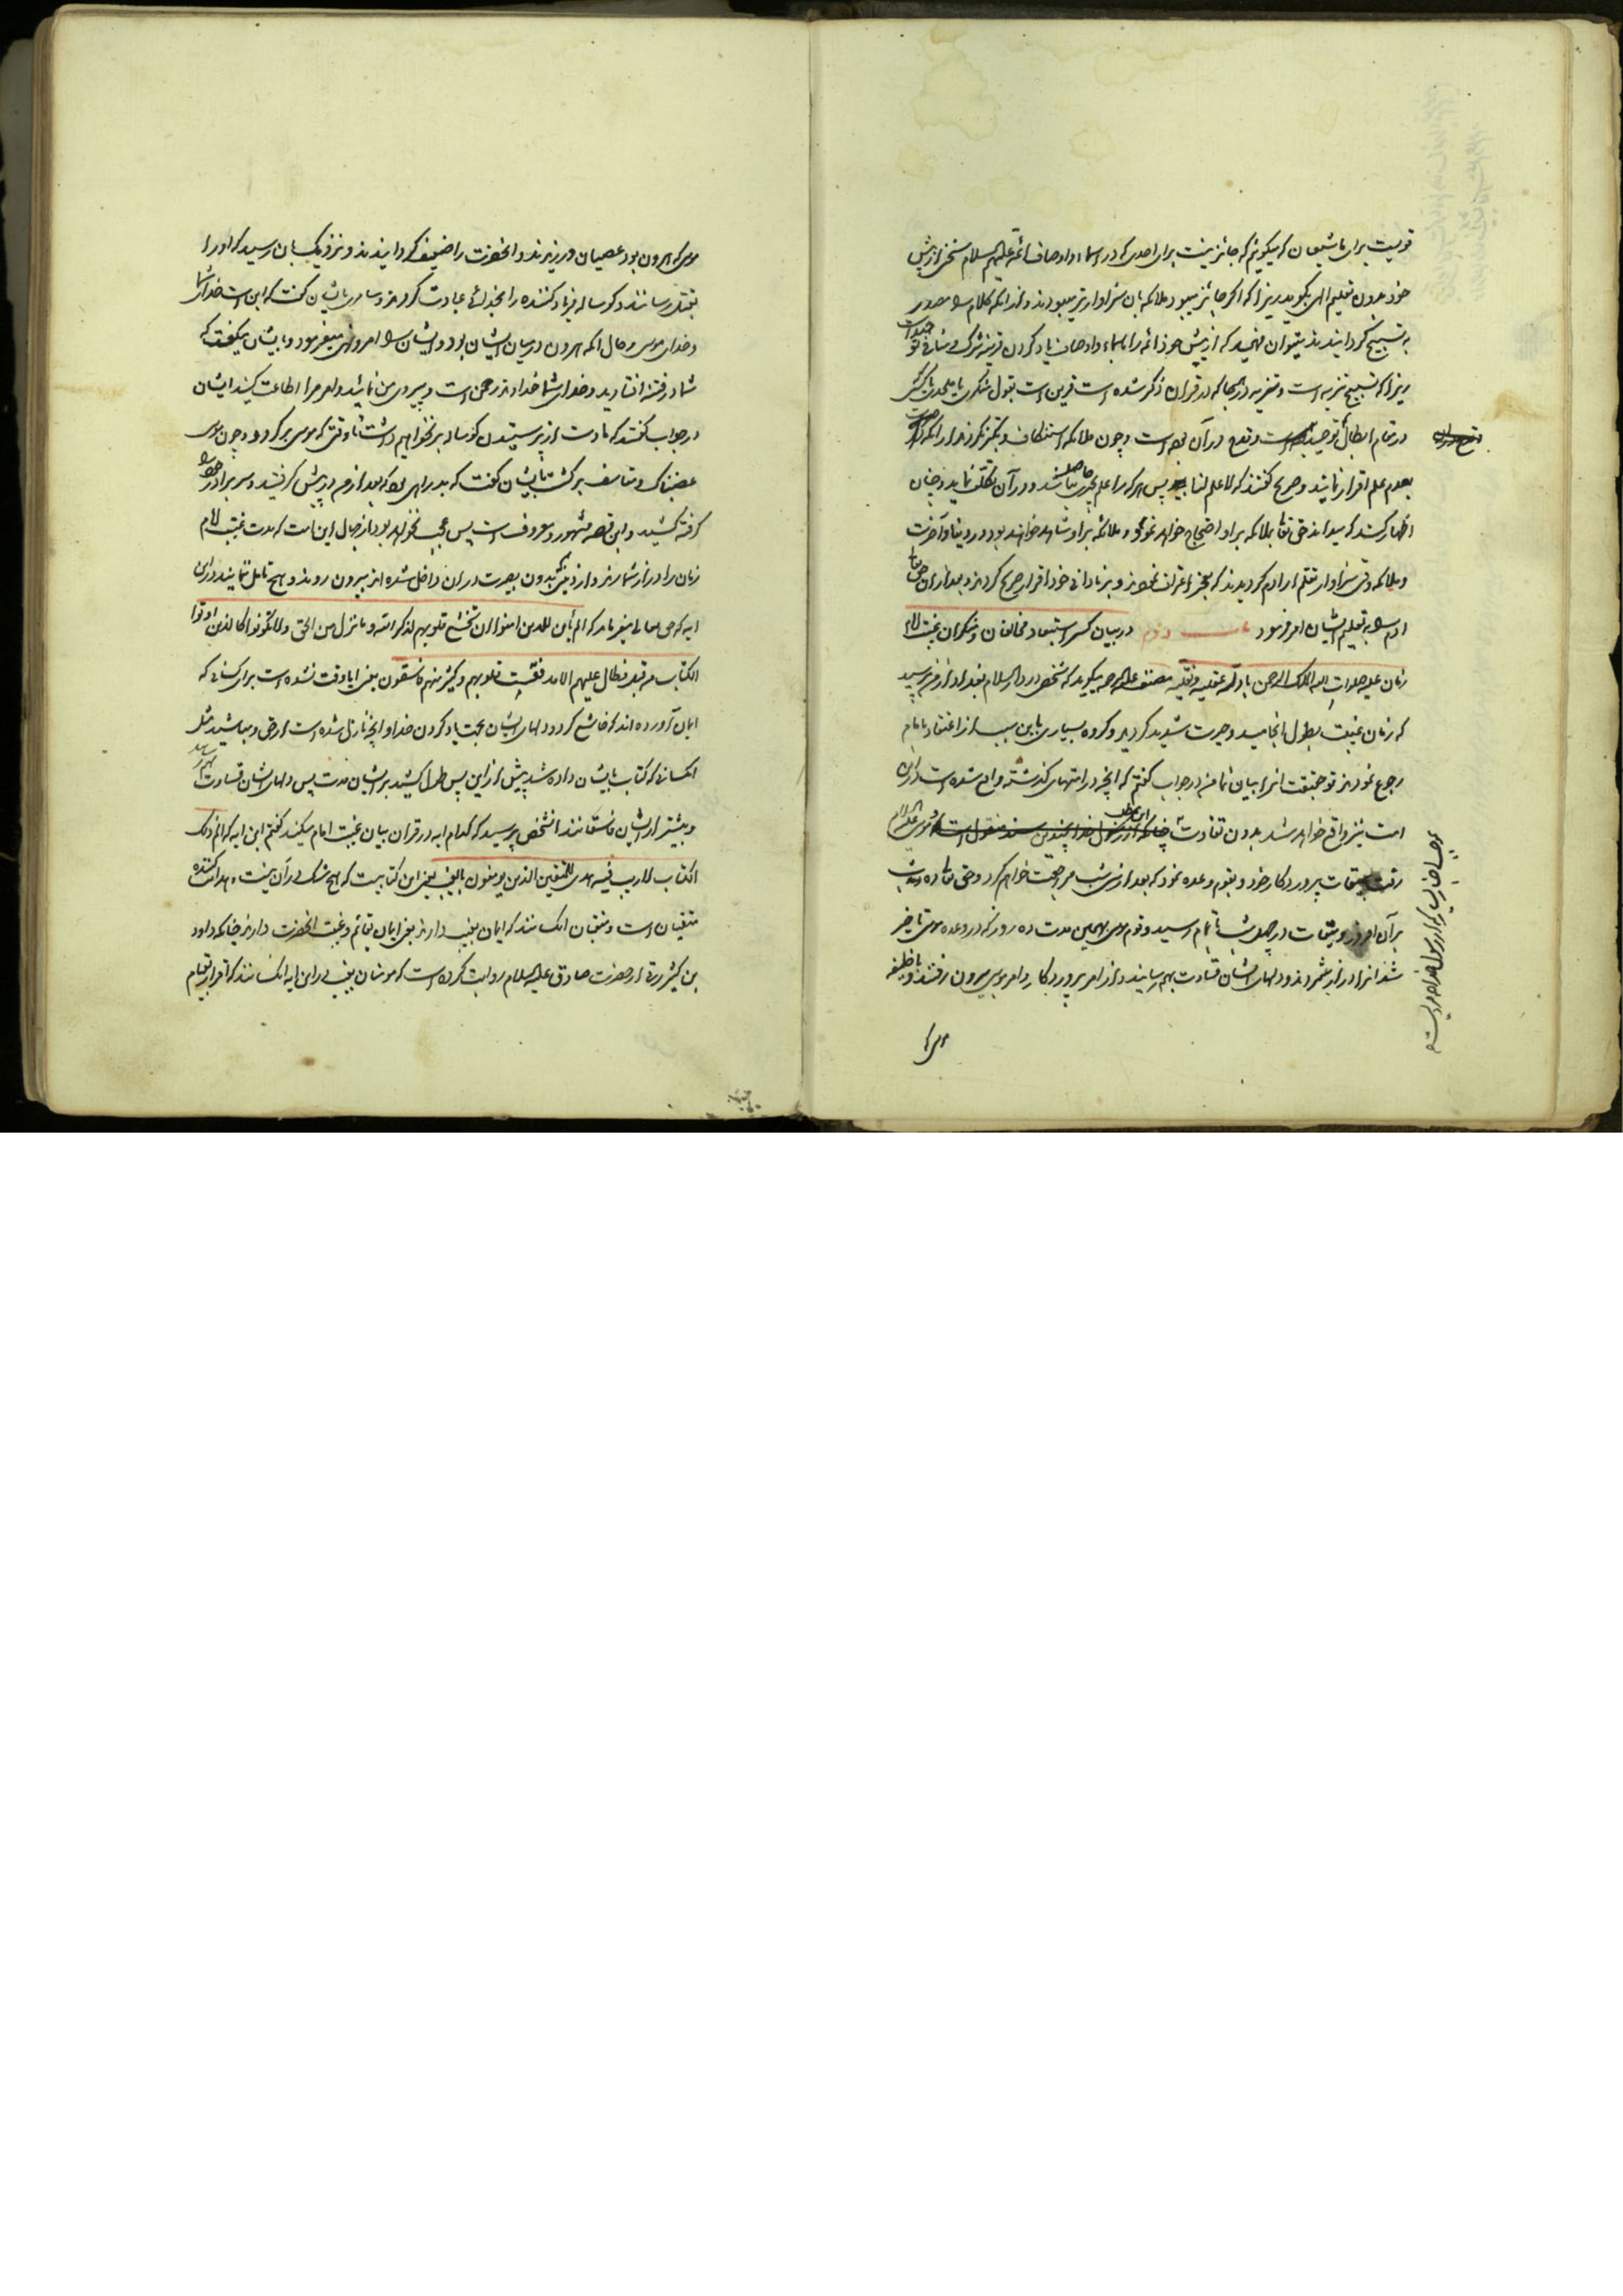 قویست برای ما شیعیان که میکوئیم که جائز نیست برای احدی که در اسماء و اوصاف ائمه علیهم السلام سخنی از پیش
خود بدون تعلیم الهی بکوید زیرا که اکر جائز میبود ملائکه بان سزاوارتر میبودند
به تسبیح کردانیدند میتوان فهمید که از پیش خود ائمه را باسماء و اوصاف یاد کردن
زیرا که تسبیح تنزیه است و تنزیه در آنجا که در قران ذکر شده است قرین است بقول
در مقام ابطال توحید است و چون ملائکه استنکاف و تکبر نکردند از آنکه
بعدم علم اقرار نمایند و صریح کفتند که لا علم لنا پس هر که را علم بچیزی حاصل نباشد و در آن تکلف نماید و چنان
اظهار کند که میداند حق تعالی بملائکه بر او احتجاج خواهد نمود و ملائکه بر او شاهد خواهند بود در دنیا و آخرت
و ملائکه وقتی سزاوار تعلم از آدم کردیدند که بعجز اعتراف نمودند و بنادانی خود اقرار صریح کردند و بعد از آن حق تعالی
آدم را به تعلیم ایشان امر فرمود باب دوم در بیان کسر استبعاد مخالفان و منکران غیبت امام
زمان علیه صلوات الله الملک الرحمن بادله عقلیه و نقلیه مصنف علیه الرحمه میکوید که شخصی در دار السلام بغداد از من پرسید
که زمان غیبت بطول انجامید و حیرت شدید کردید و کروه بسیاری باین سبب از اعتقاد بامام
رجوع نمودند تو حقیقت انرا بیان نما من در جواب کفتم که آنچه در امتهای کذشته واقع شده است در این
امت نیز واقع خواهد شد بدون تفاوت چنانکه از رسول خدا بچندین سند منقول است
رفت بمیقات پرورد کار خود و بقوم وعده نمود که بعد از سی شب مراجعت خواهم کرد و حق تعالی ده شب
بر آن افزود و میقات در چهل شب باتمام رسید و قوم موسی بهمین مدت ده روز که در وعده موسی تاخیر
شد انرا دراز شمردند و دلهای ایشان قساوت بهم رسانید و از امر پروردکار و امر موسی بیرون رفتند و با خلیفه
موسی که
موسی که هرون بود عصیان ورزیدند و آنحضرت را ضعیف کردانیدند و نزدیک بآن رسید که او را
بقتل رسانند و کوساله فریاد کننده را بخدائی عبادت کردند و سامری بایشان کفت که این است خدای شما
و خدای موسی و حال آنکه هرون در میان ایشان بود و ایشان را امر و نهی میفرمود و بایشان میکفت که
شما در فتنه افتادید و خدای شما خداوند رحمن است و پیروی من نمائید و امر مرا اطاعت کنید ایشان
در جواب کفتند که ما دست از پرستیدن کوساله بر نخواهیم داشت تا وقتی که موسی بر کردد و چون موسی
غضبناک و متاسف بر کشت بایشان کفت که بد راهی بود که بعد از من در پیش کرفتید و سر برادر خود را
کرفته کشید و این قصه مشهور و معروف است پس عجب نخواهد بود از جهال این امت که مدت غیبت امام
زمان را دراز شمارند و از دینی که بدون بصیرت در ان داخل شده اند بیرون روند و هیچ تامل ننمایند در این
آیه که حق تعالی میفرماید که الم یأن للذین امنوا ان تخشع قلوبهم لذکر الله و ما نزل من الحق و لا یکونوا کالذین اوتوا
الکتاب من قبل فطال علیهم الامد فقست قلوبهم و کثیر منهم فاسقون یعنی ایا وقت نشده است برای کسانی که
ایمان آورده اند که خاشع کردد دلهای ایشان بجهت یاد کردن خدا و آنچه نازل شده است از حق و نباشید مثل
آنکسانی که کتاب بایشان داده شد پیش از این پس طول کشید بر ایشان مدت پس دلهای ایشان قساوت بهم رسانید
و بیشتر از ایشان فاسقانند آنشخص پرسید که کدام آیه در قران بیان غیبت امام میکند کفتم این آیه که الم ذلک
الکتاب لا ریب فیه هدی للمتقین الذین یومنون بالغیب یعنی این کتابیست که هیچ شکی در آن نیست و هدایت کننده
متقیان است و متقیان آنکسانند که ایمان بغیب دارند یعنی ایمان بقائم و غیبت آنحضرت دارند چنانکه داود
بن کثیر رقی از حضرت صادق علیه السلام روایت کرده است که مومنان بغیب در این آیه آنکسانند که اقرار بقیام